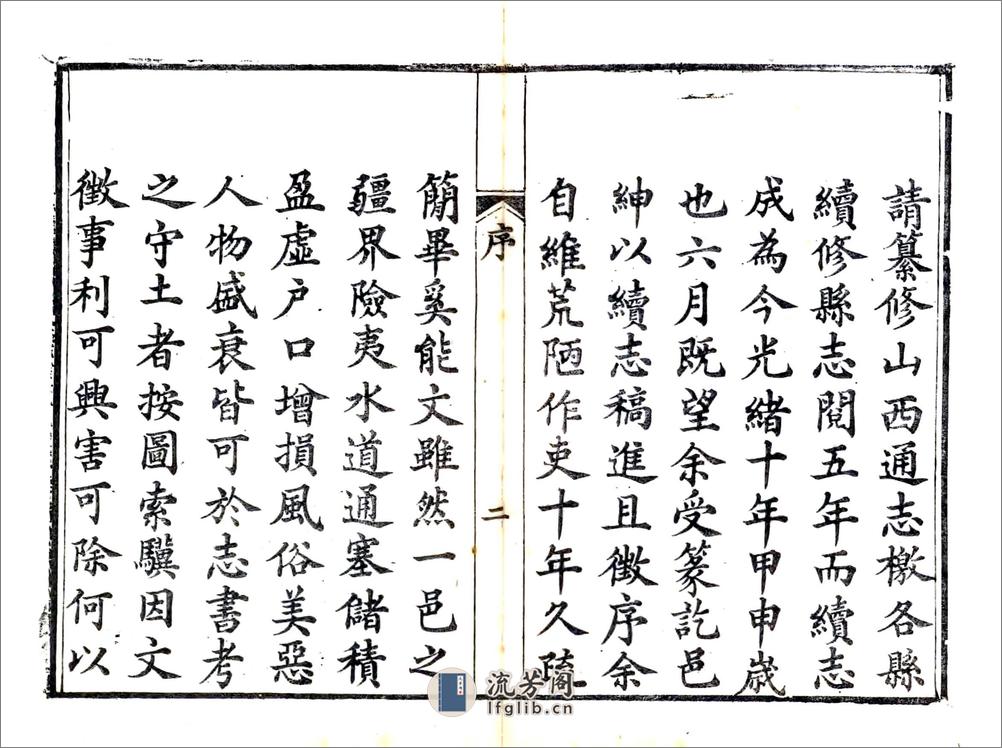 請纂修山西通志檄各縣
續修縣志閱五年而續志
成為今光緒十年甲申歲
也六月既望余受篆訖邑
紳以續志稿進且徵序余
自維荒陋作吏十年久疏
序
二
簡畢奚能文雖然一邑之
疆界險夷水道通塞儲積
盈虛户口增損風俗美惡
人物盛衰皆可於志書考
之守土者按圖索驥因文
徵事利可興害可除何以
流芳閣
lfglib.cn